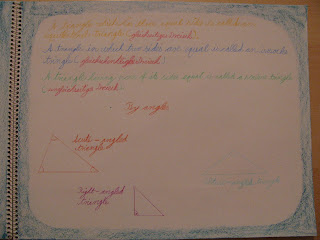 A triangle which has three equal sides is called an
equilateral triangle (gleichseitiges Dreieck).
A triangle in which two sides are equal is called an isosceles
triangle (gleichschenkliges Dreieck).
A triangle having none of its sides equal is called a scalene triangle
(ungleichseitiges Dreieck).
By angles
Acute-angled
triangle
Right-angled
triangle